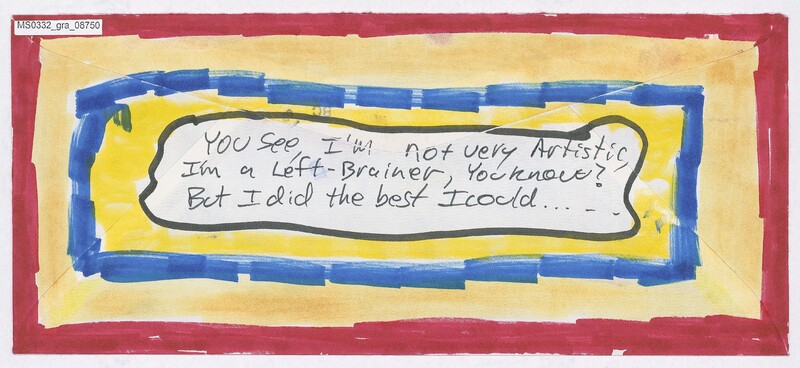 MS0332_gra_08750
You see, I'm not very Artistic,
I'm a Left-Brainer, You know?
But I did the best I could......